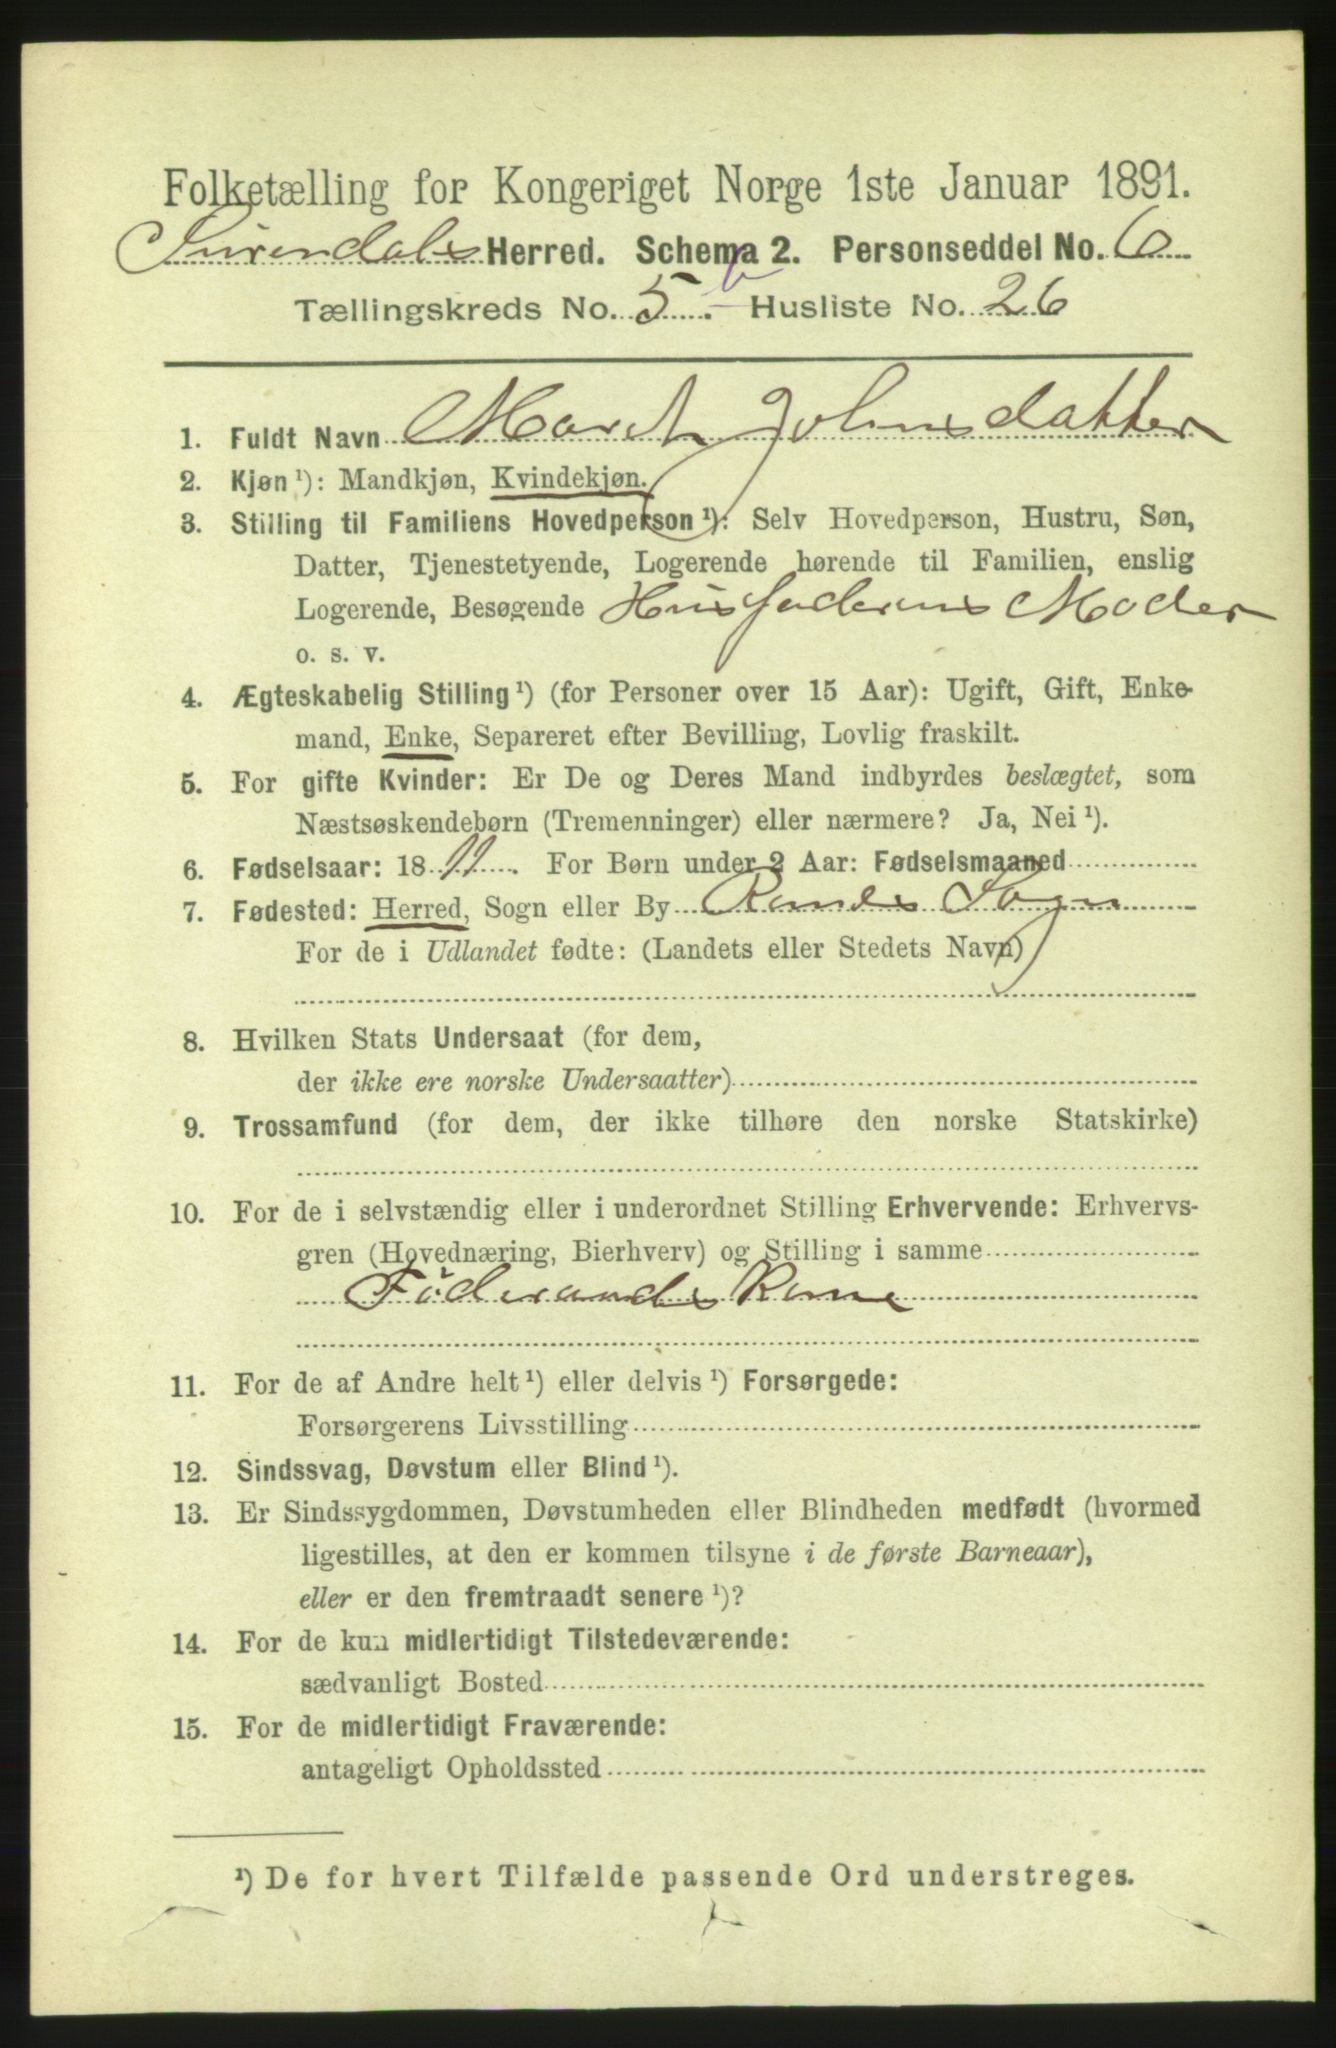 Folketælling for Kongeriget Norge 1ste Januar 1891.
Surendals Herred. Schema 2. Personseddel No. 6
Tællingskreds No. 5 b. Husliste No. 26
1. Fuldt Navn Marit Johnsdatter
2. Kjøn ¹): Mandkjøn, Kvindekjøn.
3. Stilling til Familiens Hovedperson ¹): Selv Hovedperson, Hustru, Søn,
Datter, Tjenestetyende, Logerende hørende til Familien, enslig
Logerende, Besøgende Husfaderens Moder
o. s. v.
4. Ægteskabelig Stilling ¹) (for Personer over 15 Aar): Ugift, Gift, Enke-
mand, Enke, Separeret efter Bevilling, Lovlig fraskilt.
5. For gifte Kvinder: Er De og Deres Mand indbyrdes beslægtet, som
Næstsøskendebørn (Tremenninger) eller nærmere? Ja, Nei ¹).
6. Fødselsaar: 1811. For Børn under 2 Aar: Fødselsmaaned
7. Fødested: Herred, Sogn eller By Ranes Sogn
For de i Udlandet fødte: (Landets eller Stedets Navn)
8. Hvilken Stats Undersaat (for dem,
der ikke ere norske Undersaatter)
9. Trossamfund (for dem, der ikke tilhøre den norske Statskirke)
10. For de i selvstændig eller i underordnet Stilling Erhvervende: Erhvervs-
gren (Hovednæring, Bierhverv) og Stilling i samme
Föderaads Kone
11. For de af Andre helt ¹) eller delvis ¹) Forsørgede:
Forsørgerens Livsstilling
12. Sindssvag, Døvstum eller Blind ¹).
13. Er Sindssygdommen, Døvstumheden eller Blindheden medfødt (hvormed
ligestilles, at den er kommen tilsyne i de første Barneaar),
eller er den fremtraadt senere ¹)?
14. For de kun midlertidigt Tilstedeværende:
sædvanligt Bosted
15. For de midlertidigt Fraværende:
antageligt Opholdssted
¹) De for hvert Tilfælde passende Ord understreges.